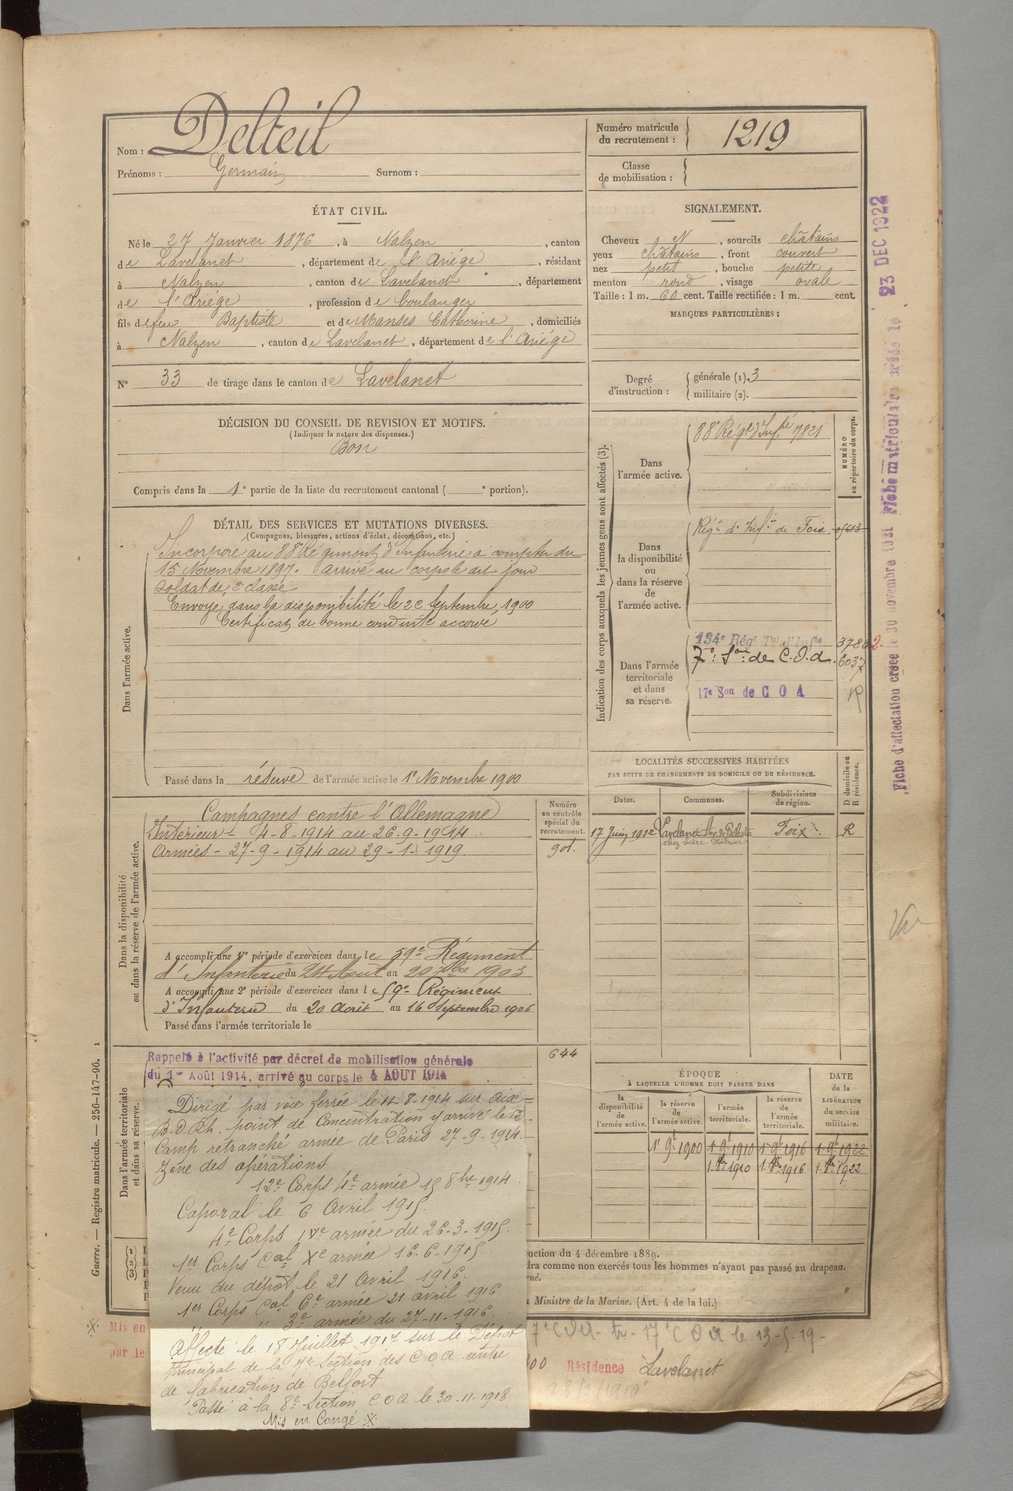 Nom : Delteil
Prénoms : Germain Surnom :
Numéro matricule du recrutement : 1219
Classe de mobilisation :
ÉTAT CIVIL.
Né le 27 Janvier 1876, à Nalzen, canton
de Lavelanet, département de l'Ariége, résidant
à Nalzen, canton de Lavelanet, département
de l'Ariége, profession de boulanger
fils de feu Baptiste et de Manses Catherine, domiciliés
à Nalzen, canton de Lavelanet, département de l'Ariége
N° 33 de tirage dans le canton de Lavelanet
SIGNALEMENT.
Cheveux N, sourcils châtains
yeux châtains, front couvert
nez petit, bouche petite
menton rond, visage ovale
Taille : 1 m. 60 cent. Taille rectifiée : 1 m. cent.
MARQUES PARTICULIÈRES :
Degré d'instruction : générale (1). 3
militaire (2).
DÉCISION DU CONSEIL DE REVISION ET MOTIFS.
(Indiquer la nature des dispenses.)
Bon
Compris dans la 1e partie de la liste du recrutement cantonal ( e portion).
DÉTAIL DES SERVICES ET MUTATIONS DIVERSES.
(Campagnes, blessures, actions d'éclat, décorations, etc.)
Dans l'armée active.
Incorporé au 88e Régiment d'Infanterie à compter du
15 Novembre 1897. Arrivé au corps le dit jour
soldat de 2e classe
Envoyé dans la disponibilité le 22 Septembre 1900
Certificat de bonne conduite accordé
Passé dans la réserve de l'armée active le 1er Novembre 1900
Indication des corps auxquels les jeunes gens sont affectés (3).
NUMÉRO au répertoire du corps.
Dans l'armée active.
88e Régt d'Infie 7821
Dans la disponibilité ou dans la réserve de l'armée active.
Régt d'Infie de Foix
Dans l'armée territoriale et dans sa réserve.
134e Régt Tal d'Infie 3780
7e Son de C.O.A. 6037
17e Son de C O A R
LOCALITÉS SUCCESSIVES HABITÉES
PAR SUITE DE CHANGEMENTS DE DOMICILE OU DE RÉSIDENCE.
Dates. Communes. Subdivisions de région. D domicile ou R résidence.
17 Juin 1912 Lavelanet Foix R
Dans la disponibilité ou dans la réserve de l'armée active.
Numéro au contrôle spécial du recrutement.
901
Campagnes contre l'Allemagne
Intérieur 4-8-1914 au 26-9-1914
Armées - 27-9-1914 au 29-1-1919
A accompli une 1re période d'exercices dans le 59e Régiment
d'Infanterie du 24 Août au 20 7bre 1903
A accompli une 2e période d'exercices dans le 59e Régiment
d'Infanterie du 20 Août au 16 Septembre 1906
Passé dans l'armée territoriale le
644
Dans l'armée territoriale et dans sa réserve.
Rappelé à l'activité par décret de mobilisation générale
du 1er Août 1914, arrivé au corps le 4 AOUT 1914
Dirigé par voie ferrée le 11-8-1914 sur Aix
B.D.Rh. point de concentration y arrivé le
Camp retranché armée de Paris 27-9-1914
Zône des opérations
12e Corps 4e armée 15 8bre 1914
Caporal le 6 Avril 1915
4e Corps armée du 26-3-1915
1er Corps Cal Xe armée 16-6-1915
Venu du dépôt le 21 Avril 1916
1er Corps Cal 6e armée 21 avril 1916
" " 3e armée du 27-11-1916
Affecté le 18 Juillet 1917 sur le Dépôt
principal de la 7e Section des C O A centre
de fabrication de Belfort
Passé à la 8e Section C O A le 30-11-1918
Mis en Congé
ÉPOQUE
À LAQUELLE L'HOMME DOIT PASSER DANS
la disponibilité de l'armée active. la réserve de l'armée active. l'armée territoriale. la réserve de l'armée territoriale.
DATE de la LIBÉRATION du service militaire.
1er 9e 1900 1er 9e 1910 1er 9e 1916 1er 9e 1922
1er 1910 1er 1916 1er 1922
uction du 4 décembre 1889.
dra comme non exercés tous les hommes n'ayant pas passé au drapeau.
Ministre de la Marine. (Art. 4 de la loi.)
Mis en
par le
17e C O A le 13-5-19-
Résidence Lavelanet
Guerre. — Registre matricule. — 256-147-96. 1
Fiche d'affectation créée le 30 novembre 1921 Fiche matriculaire créée le 23 DEC 1922